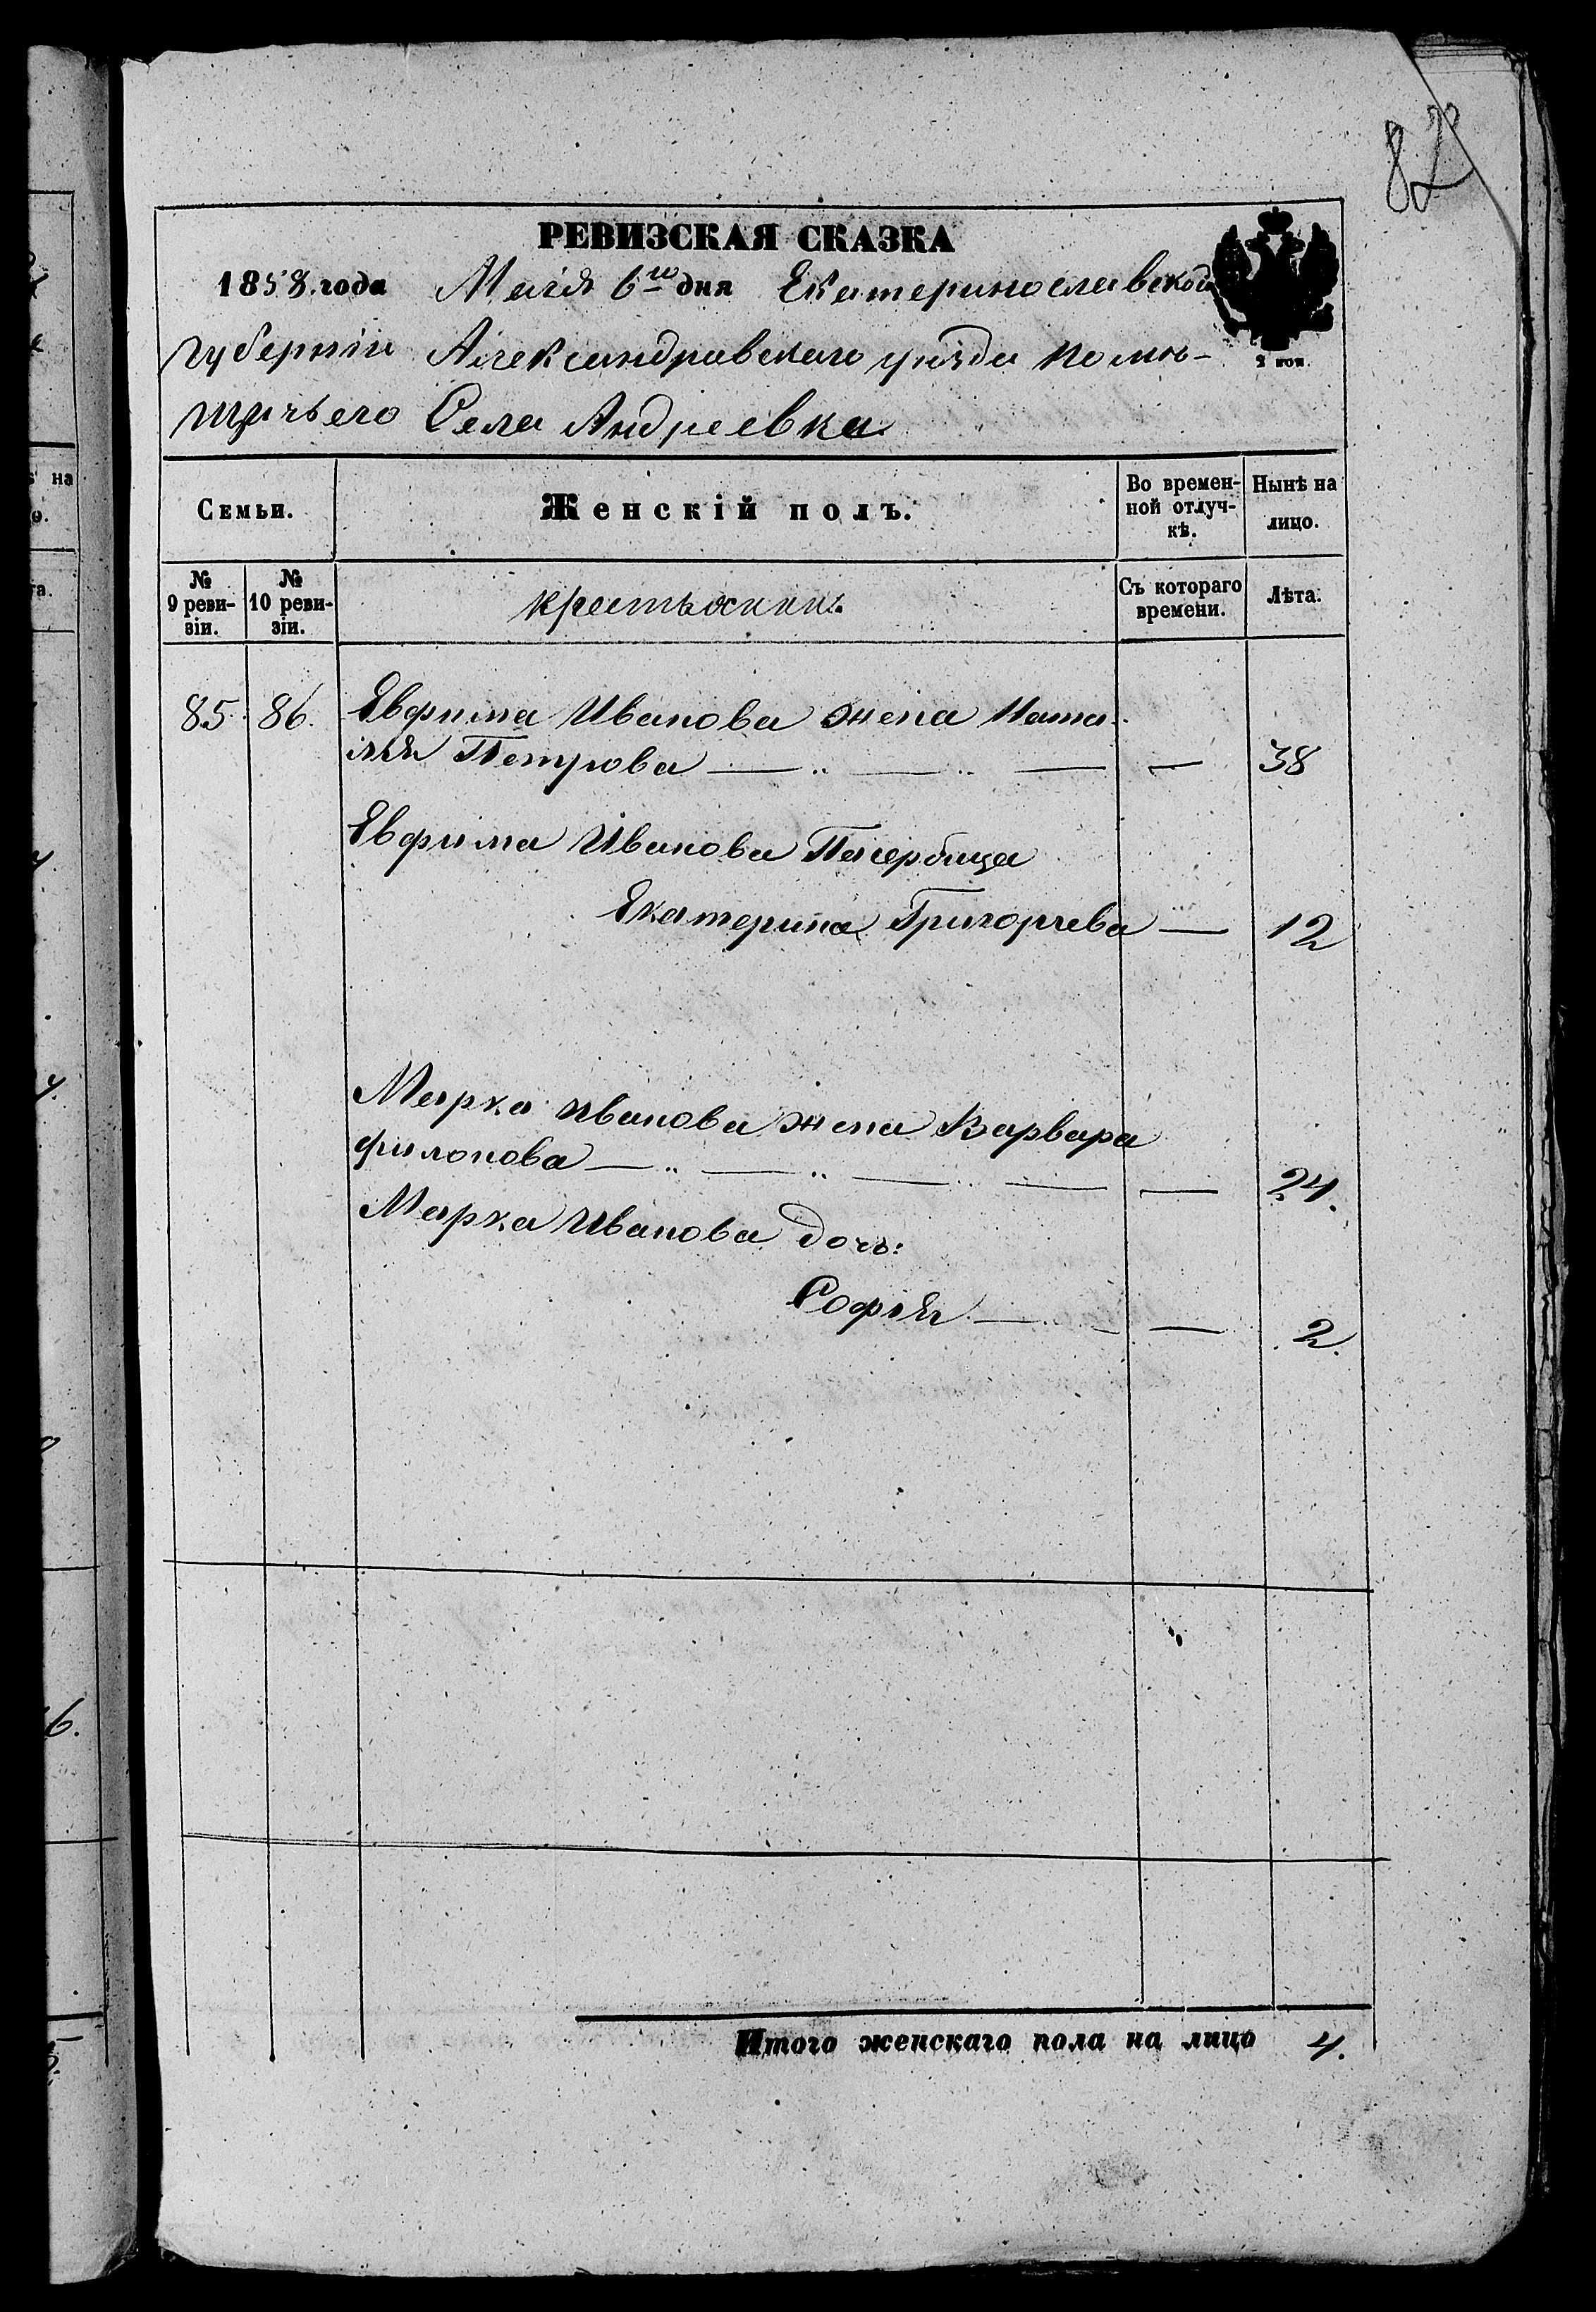 82
РЕВИЗСКАЯ СКАЗКА
1858. года Маія 6го дня Екатеринославской
губерніи Александровскаго уѣзда помѣ-
щичьего Села Андреевка
2 коп.
Семьи.
Женскій полъ.
Во времен-
ной отлуч-
кѣ.
Нынѣ на
лицо.
№
9 реви-
зіи.
№
10 реви-
зіи.
крестьянки.
Съ котораго
времени.
Лѣта.
85. 86. Евфима Иванова жена Ната-
лья Петрова — — — — 38
Евфима Иванова Пасербица
Екатерина Григорьева — 12
Марка Иванова жена Варвара
филонова — — — — — 24.
Марка Иванова дочь:
Софья — — — 2.
Итого женскаго пола на лицо 4.